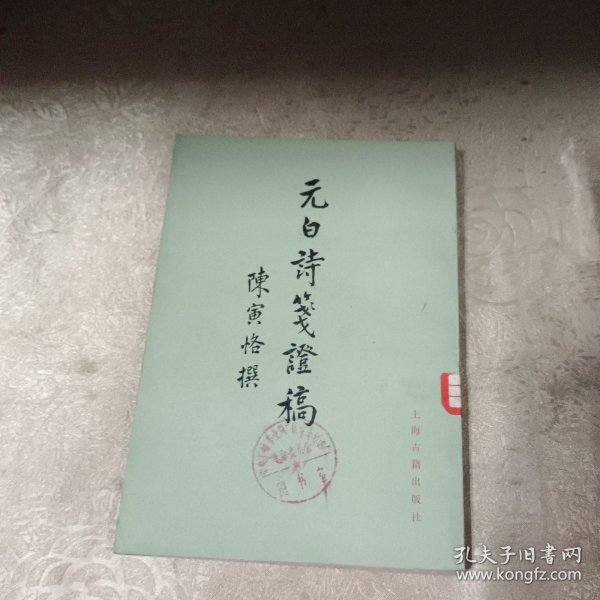 元白詩箋證稿
陳寅恪撰
上海古籍出版社
孔夫子旧书网
www.kongfz.com